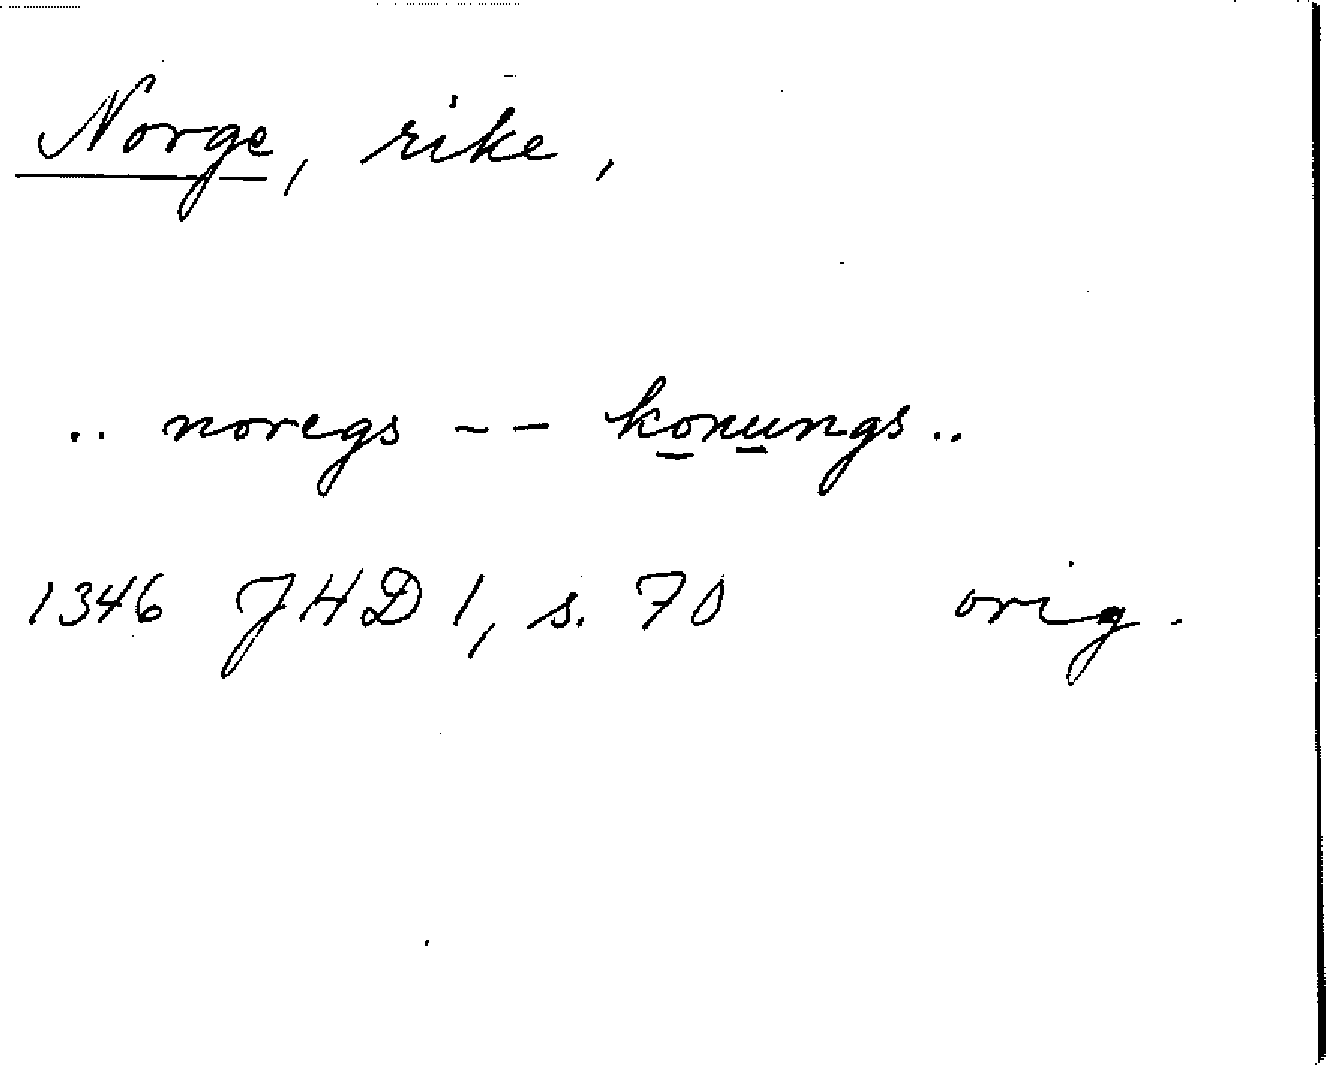 Norge, rike,
.. noregs -- konungs ..
1346 JHD 1, s. 70 orig.